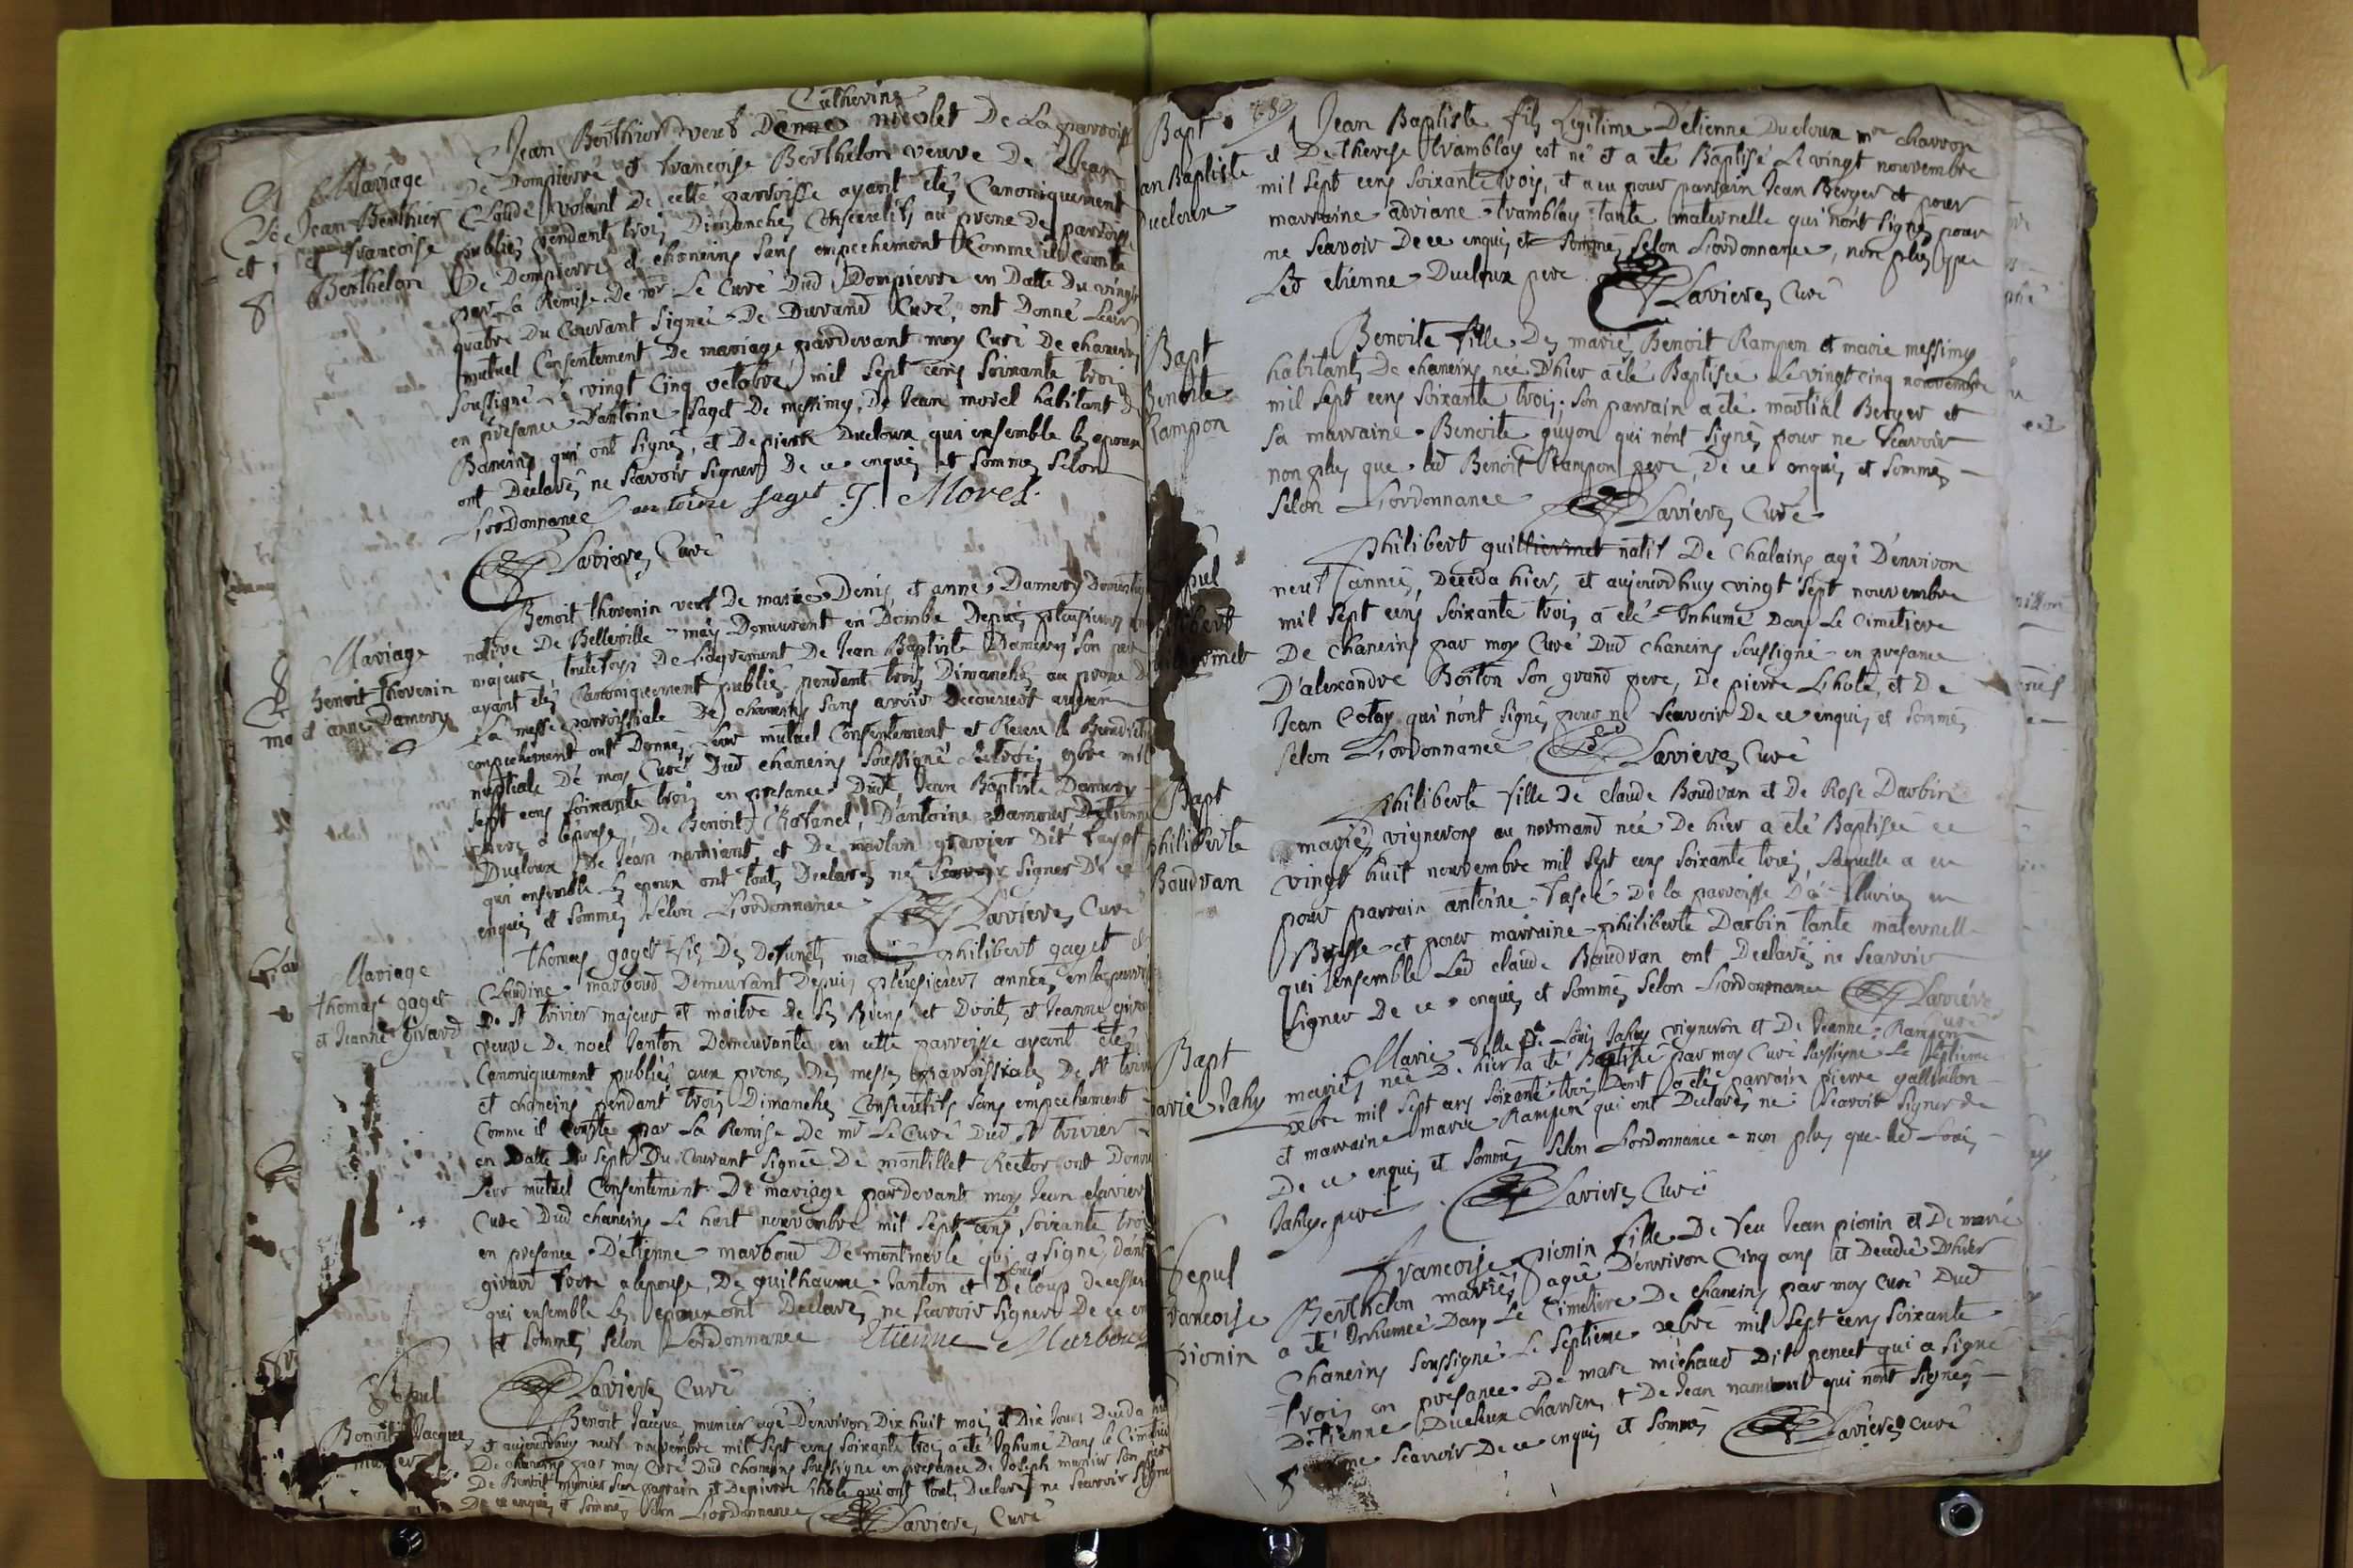 Mariage
Jean Berthier
et francoise
Berthelon
Catherine
Jean Berthier veuf D'anne nicolet De La parroisse
De Dompierre et francoise Berthelon veuve De Jean
Claude volant De cette parroisse ayant etés Canoniquement
publiés pendant trois Dimanches Consecutifs au prone de parroisse
De Dompierre et chaneins sans empechement Comme il conste
par La Remise De mr Le Curé Dud Dompierre en Datte Du vingt
quatre Du Courant signée De Durand Curé, ont Donné Leur
mutuel Consentement De mariage pardevant moy Curé De chaneins
soussigné Le vingt Cinq octobre mil sept cens soixante trois
en presance D'antoine saget De messimy, De Jean morel habitant
Baneins qui ont signés, et De pierre Ducloux qui ensemble les epoux
ont Declarés ne scavoir signer De ce enquis et sommés selon
L'ordonnance antoine saget J. Morel
Laviere, Curé
Mariage
Benoit thevenin
et anne Damery
Benoit thevenin veuf De marie Denis et anne Damery
native De Belleville mais Demeurant en Dombe Depuis plusieurs
majeure, toutefois De L'agrement De Jean Baptiste Damery son pere
ayant etés Canoniquement publiés pendant trois Dimanches au prone
La messe parroissiale De chaneins sans avoir Decouvert aucun
empechement ont Donnés Leur mutuel Consentement et Receu la
nuptiale De moy Curé Dud chaneins soussigné le trois 9bre mil
sept cens soixante trois en presance Dudt Jean Baptiste Damery
pere a l'epouse, De Benoit Chatanel, D'antoine Damery D'etienne
Ducloux De Jean namiant et De martin
qui ensemble les epoux ont touts Declarés ne scavoir signer De ce
enquis et sommés selon L'ordonnance
Laviere, Curé
Mariage
thomas gaget
et Jeanne Givard
thomas gaget fils Des Defunts mariés philibert gaget et
Claudine marboud Demeurant Depuis plusieurs années en la parroisse
De St trivier majeur et maitre De ses Biens et Droits et Jeanne
veuve De noel Janton Demeurante en cette parroisse ayant etés
Canoniquement publiés aux prones Des messes parroissiales De St
et chaneins pendant trois Dimanches Consecutifs sans empechement
Comme il Conste par La Remise De mr Le Curé Dud St trivier
en Datte Du sept Du Courant signée De montillet Rector ont Donné
Leur mutuel Consentement De mariage pardevant moy Jean claviere
Curé Dud chaneins Le huit nouvembre mil sept cens soixante trois
en presance D'etienne marboud De montmerle qui a signé, D'ant
givard frere a lepouse, De guilhaume Janton et De
qui ensemble les epoux ont Declarés ne scavoir signer De ce
et sommés selon L'ordonnance Etienne Marboud
Laviere, Curé
Sepul
Benoit Jacque
munier
Benoit Jacque munier agé D'environ Dix huit mois et Dix Jours Deceda hier
et aujourdhuy neuf nouvembre mil sept cens soixante trois a eté Inhumé Dans le Cimetiere
De chaneins par moy Curé Dud chaneins soussigné en presance De Joseph munier son pere
De Benoit munier son parrain et De pierre Lhote qui ont touts Declarés ne scavoir signer
De ce enquis et sommés selon L'ordonnance Laviere, Curé
Bapt
an Baptiste
Ducloux
Jean Baptiste fils Legitime D'etienne Ducloux mr charron
et De therese tramblay est né et a eté Baptisé Le vingt nouvembre
mil sept cens soixante trois, et a eu pour parrain Jean Berger et pour
marraine adriane tramblay tante maternelle qui n'ont signés pour
ne scavoir De ce enquis et sommés selon L'ordonnance, non plus que
Led etienne Ducloux pere
Laviere, Curé
Bapt
Benoite
Rampon
Benoite fille Des mariés Benoit Rampon et marie messimy
habitants De chaneins née D'hier a eté Baptisée Le vingt cinq nouvembre
mil sept cens soixante trois; son parrain a eté martial Berger et
sa marraine Benoite guyon qui n'ont signés pour ne scavoir
non plus que led Benoit Rampon pere, De ce enquis et sommés
selon L'ordonnance Laviere, Curé
philibert guilliermet natif De Chalains agé D'environ
neuf années, Deceda hier, et aujourdhuy vingt sept nouvembre
mil sept cens soixante trois a eté Inhumé Dans Le Cimetiere
De chaneins par moy Curé Dud chaneins soussigné en presance
D'alexandre Boiton son grand pere, De pierre Lhote, et De
Jean Cotay qui n'ont signés pour ne scavoir De ce enquis et sommés
selon L'ordonnance Laviere, Curé
Bapt
philiberte
Boudvan
philiberte fille De claude Boudvan et De Rose Darbin
mariés vignerons au normand née De hier a eté Baptisée ce
vingt huit nouvembre mil sept cens soixante trois, laquelle a eu
pour parrain antoine De la parroisse
Bresse et pour marraine philiberte Darbin tante maternelle
qui ensemble Led claude Boudvan ont Declarés ne scavoir
signer De ce enquis et sommés selon L'ordonnance Laviere
curé
Bapt
Marie Jahy
Marie fille De Louis Jahy vigneron et De Jeanne Rampon
mariés née D'hier a eté Baptisé par moy Curé soussigné Le septieme
xbre mil sept cens soixante trois Dont a eté parrain pierre
et marraine marie Rampon qui ont Declarés ne scavoir signer de
De ce enquis et sommés selon L'ordonnance non plus que led Louis
Jahy pere Laviere, Curé
Sepul
francoise
pionin
francoise pionin fille De feu Jean pionin et De marie
Berthelon mariés, agée D'environ Cinq ans et Decedée D'hier
a eté Inhumée Dans Le Cimetiere De chaneins par moy Curé Dud
chaneins soussigné Le septieme xbre mil sept cens soixante
trois en presance De marc michaud Dit penet qui a signé
D'etienne Ducloux charron, et De Jean namiant qui n'ont signés
pour ne scavoir De ce enquis et sommés Laviere, curé